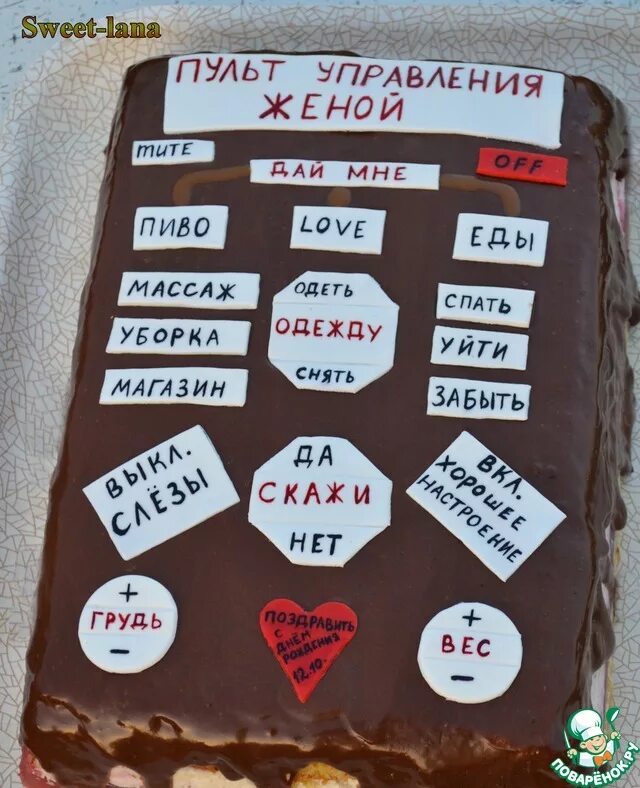 Sweet-lana
ПУЛЬТ УПРАВЛЕНИЯ
ЖЕНОЙ
mute
ДАЙ МНЕ
OFF
ПИВО
LOVE
ЕДЫ
МАССАЖ
УБОРКА
МАГАЗИН
ОДЕТЬ
ОДЕЖДУ
СНЯТЬ
СПАТЬ
УЙТИ
ЗАБЫТЬ
ВЫКЛ.
СЛЁЗЫ
ДА
СКАЖИ
НЕТ
ВКЛ.
ХОРОШЕЕ
НАСТРОЕНИЕ
+
ГРУДЬ
-
ПОЗДРАВИТЬ
С
ДНЁМ
РОЖДЕНИЯ
12.10.
+
ВЕС
-
ПОВАРЁНОК.РУ